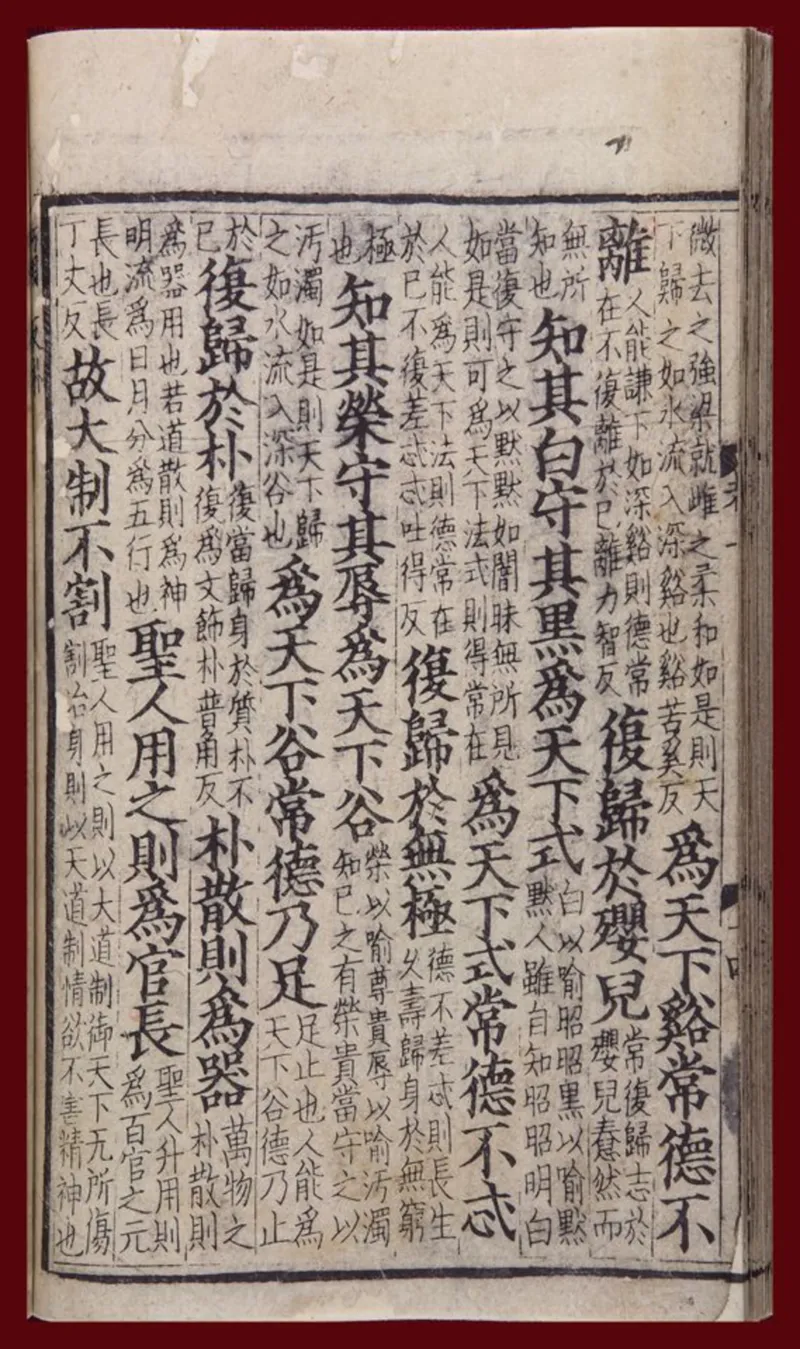 微去之強梁就雌之柔和如是則天下歸之如水流入深谿也谿苦奚反爲天下谿常德不
離人能謙下如深谿則德常在不復離於已離力智反復歸於孾兒常復歸志於孾兒惷然而
無所知也知其白守其黒爲天下式白以喻昭昭黒以喻默默人雖自知昭昭明白
當復守之以黙黙如闇昧無所見如是則可爲天下法式則得常在爲天下式常德不忒
人能爲天下法則德常在於已不復差忒忒吐得反復歸於無極德不差忒則長生乆壽歸身於無窮
極也知其榮守其辱爲天下谷榮以喻尊貴辱以喻汚濁知已之有榮貴當守之以
汚濁如是則天下歸之如水流入深谷也爲天下谷常德乃足足止也人能爲天下谷德乃止
於已復歸於朴復當歸身於質朴不復爲文飾朴普角反朴散則爲器萬物之朴散則
爲器用也若道散則爲神明流爲日月分爲五行也聖人用之則爲官長聖人升用則爲百官之元
長也長丁丈反故大制不割聖人用之則以大道制御天下无所傷割治身則以天道制情欲不害精神也